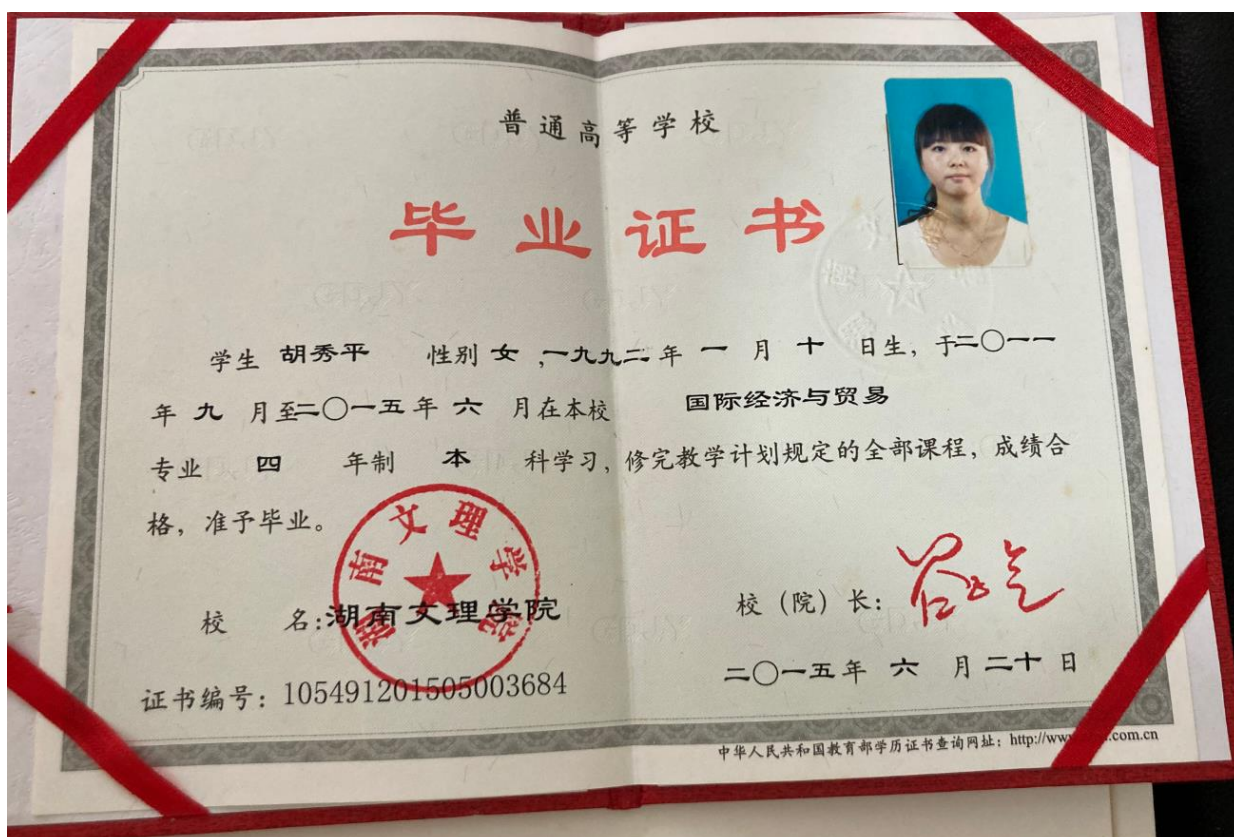 普通高等学校
毕业证书
学生 胡秀平 性别 女 ,一九九二 年 一 月 十 日生，于二〇一一
年 九 月至二〇一五 年 六 月在本校 国际经济与贸易
专业 四 年制 本 科学习，修完教学计划规定的全部课程，成绩合
格，准予毕业。
湖南文理学院
校 名:湖南文理学院
校（院）长：
二〇一五 年 六 月 二十 日
证书编号：105491201505003684
中华人民共和国教育部学历证书查询网址：http://www. .com.cn